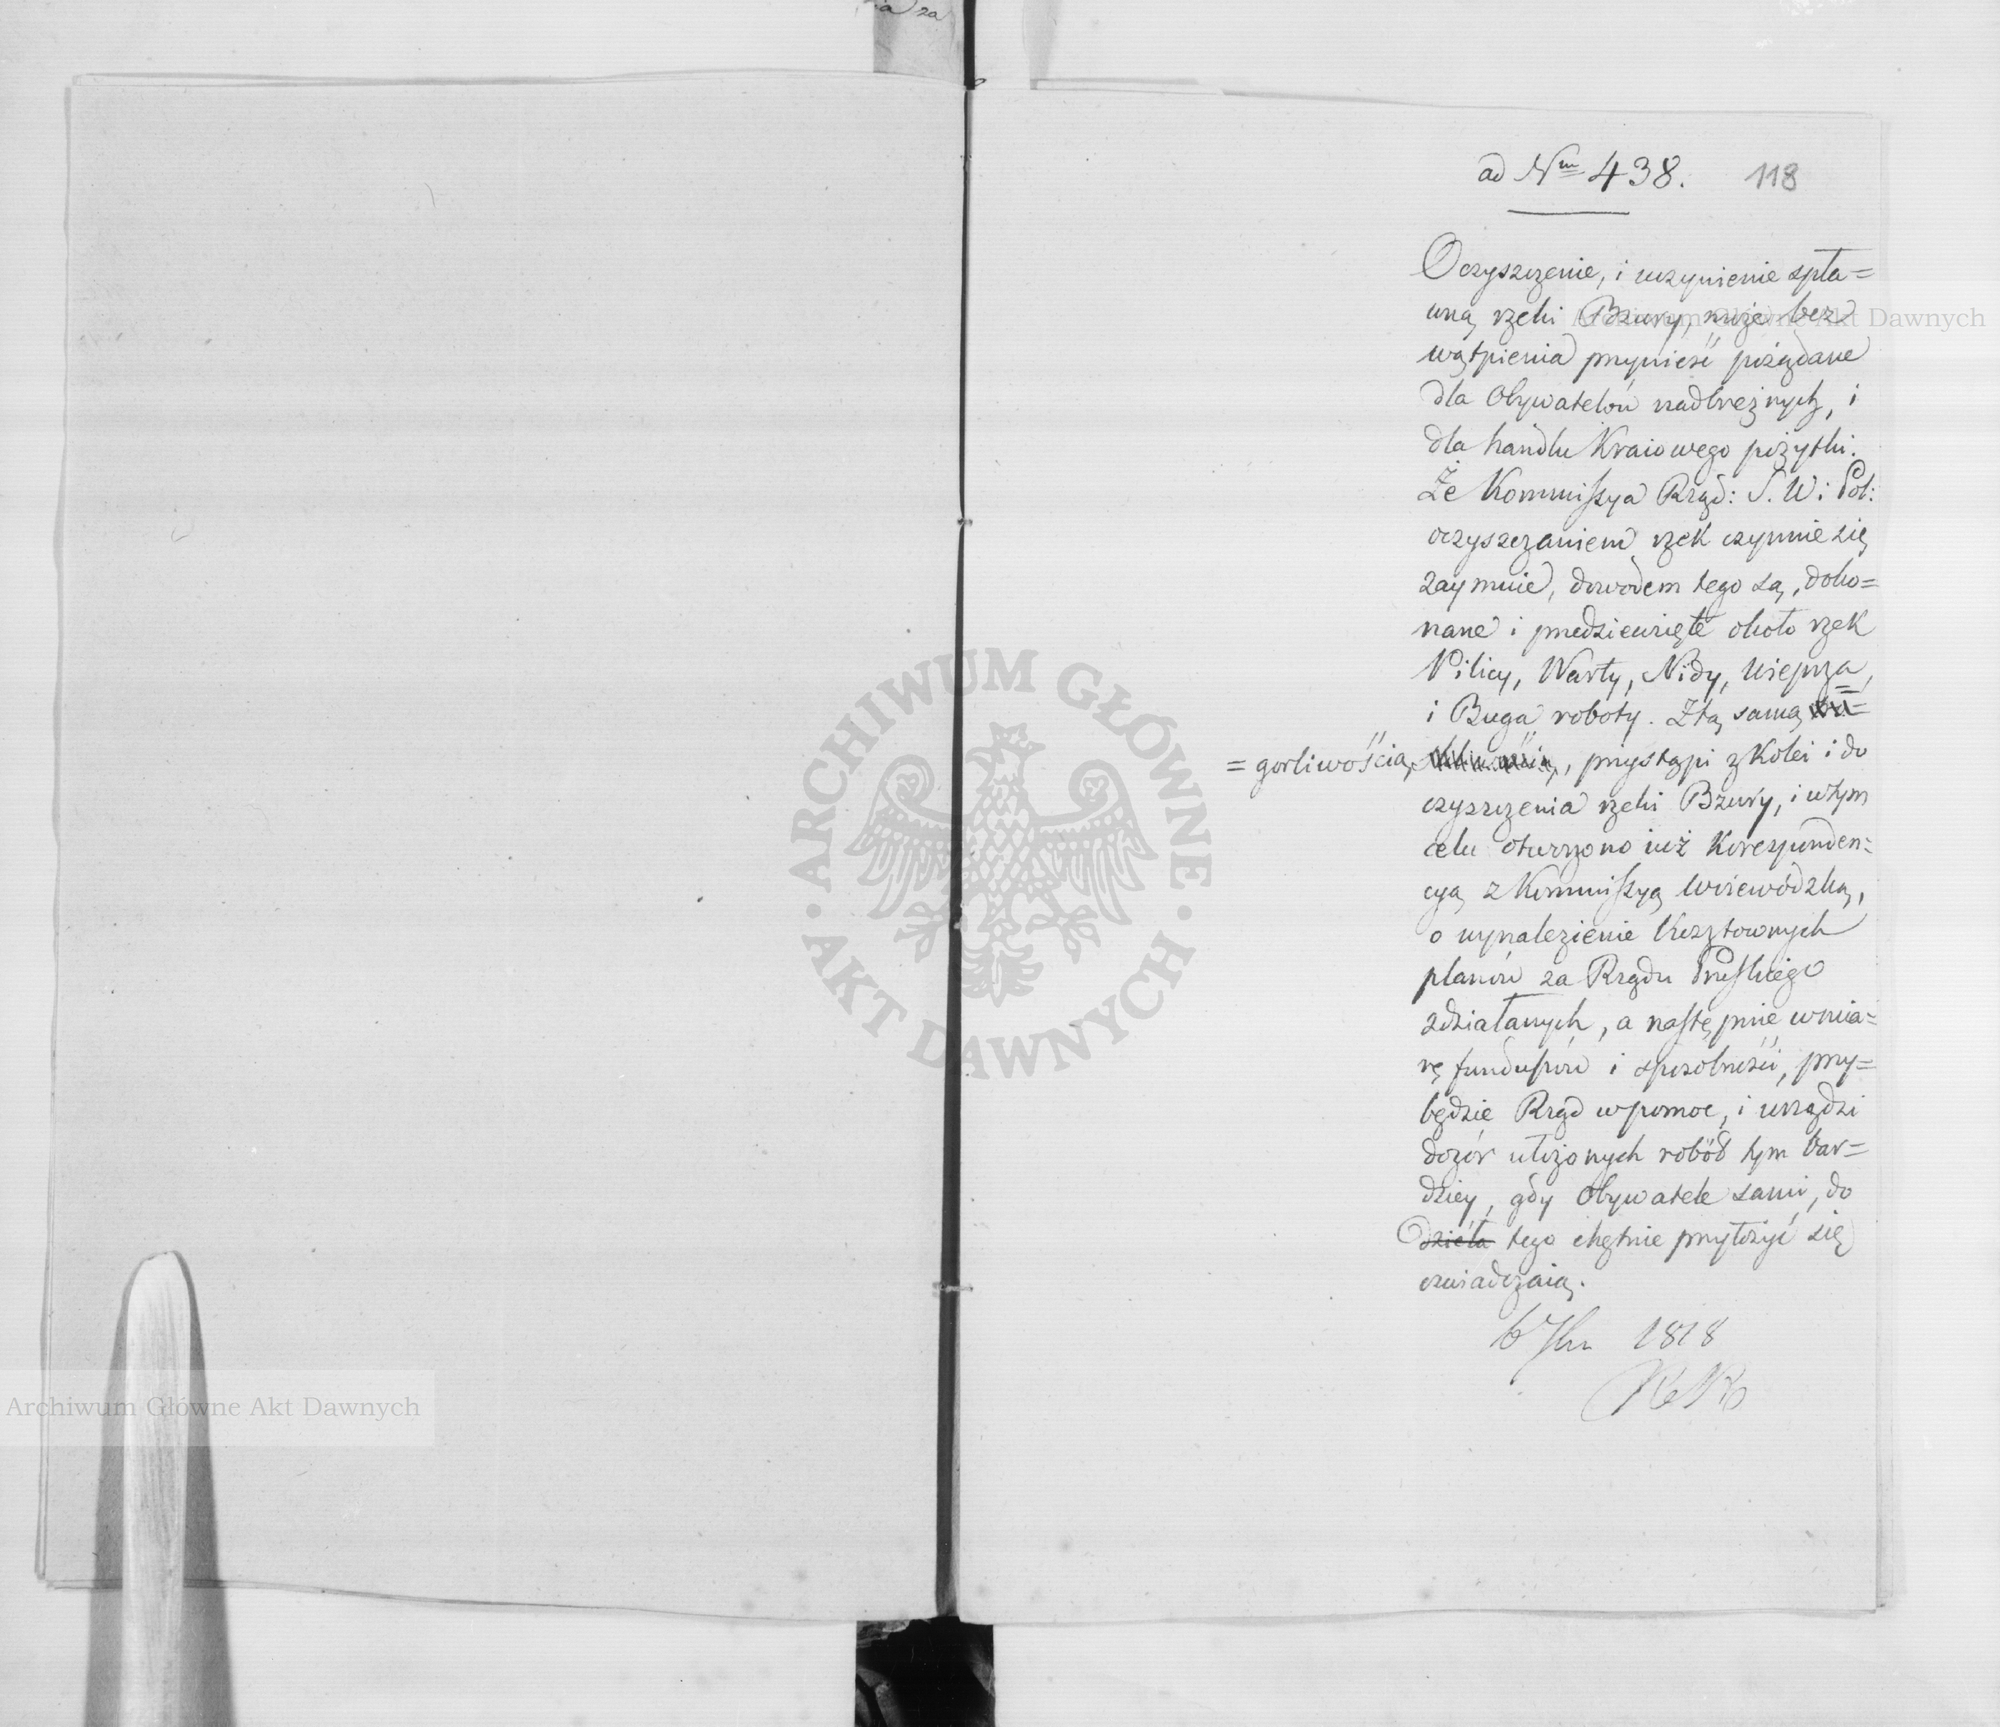 ad Nm 438. 118
Oczyszczenie, i uczynienie spła=
wną rzeki Bzury, może bez
wątpienia przynieść pożądane
dla Obywatelów nadbrzeżnych, i
dla handlu Kraiowego pożytki.
Że Kommissya Rząd: S. W: i Pol:
oczyszczaniem rzek czynnie się
zaymuie, dowodem tego są, doko=
nane i przedziewzięte około rzek
Pilicy, Warty, Nidy, Wieprza,
i Buga roboty. Ztą samą
= gorliwością, przystąpi z Kolei i do
czyszczenia rzeki Bzury, i wtym
celu otworzono iuż Koresponden=
cyą z Kommissyą Woiewódzką,
o wynalezienie Kosztownych
planów za Rządu Pruskiego
zdziałanych, a następnie wmia=
rę funduszów i sposobności, przy=
będzie Rząd wpomoc, i urządzi
dozór ułożonych robót tym bar=
dziey, gdy Obywatele sami, do
dzieła tego chętnie przyłożyć się
oświadczaią.
1818
Archiwum Główne Akt Dawnych
Archiwum Główne Akt Dawnych
ARCHIWUM GŁÓWNE
· AKT DAWNYCH ·